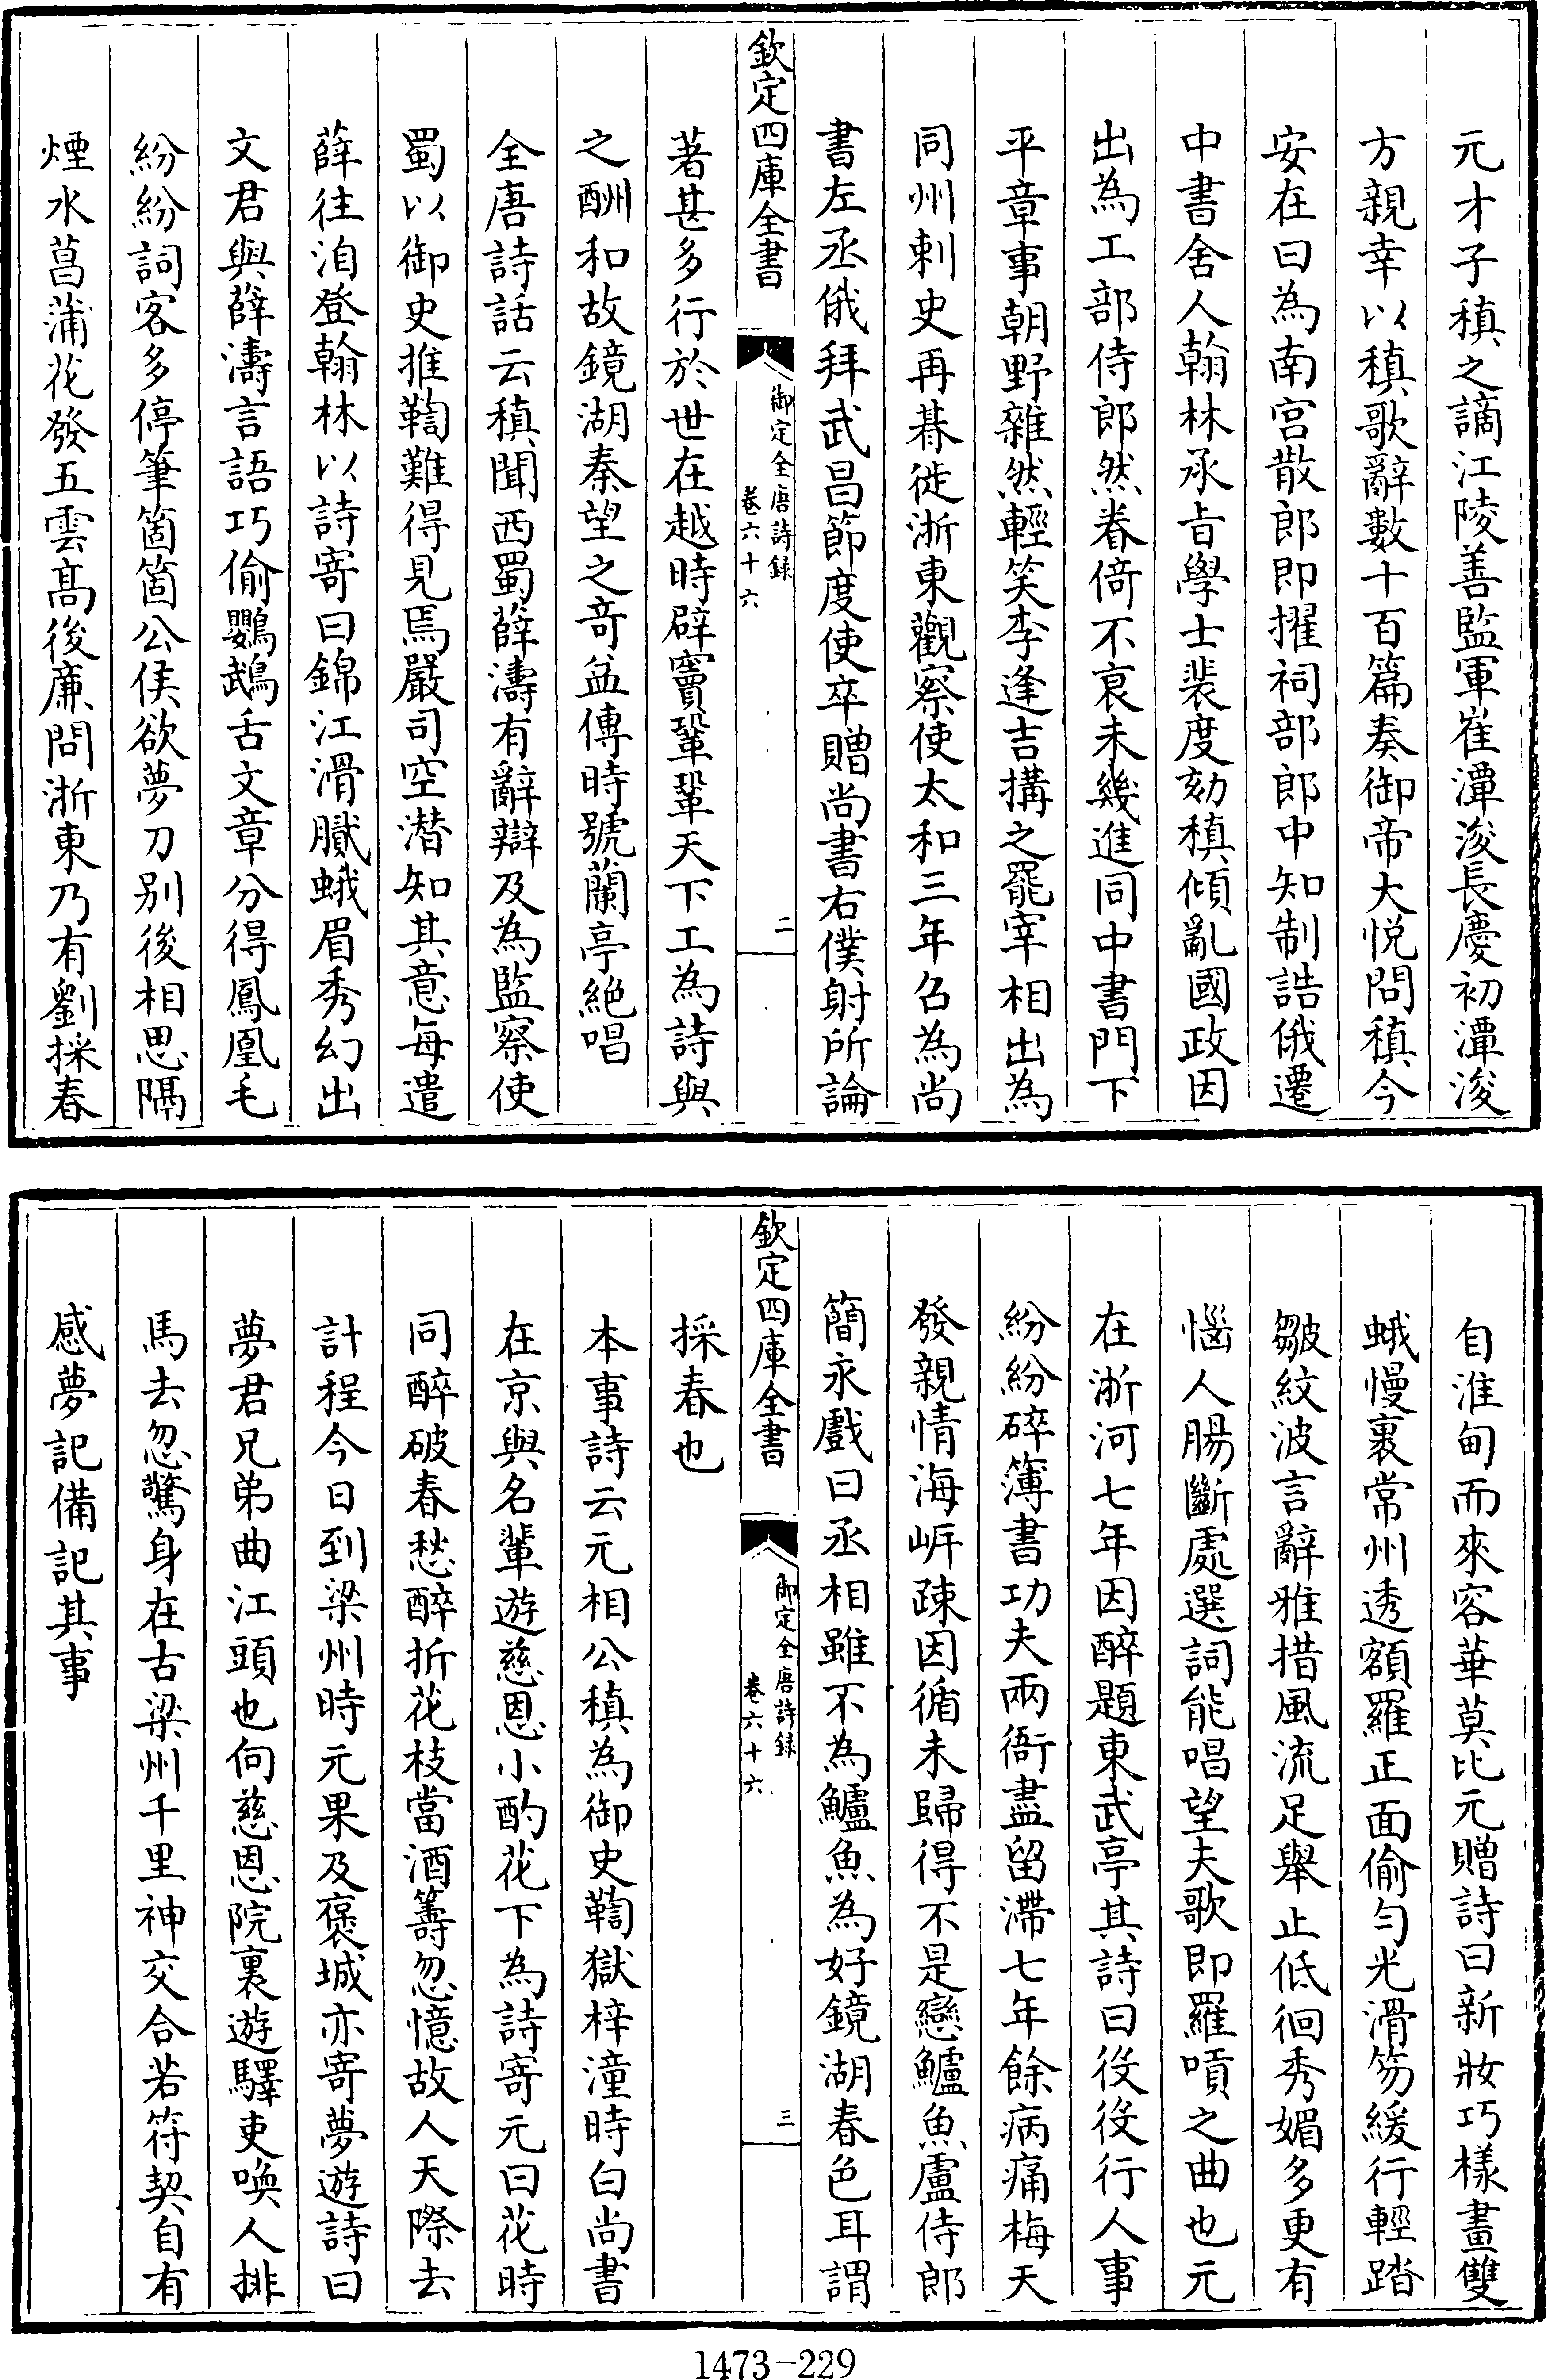 元才子稹之謫江陵善監軍崔潭浚長慶初潭浚
方親幸以稹歌辭數十百篇奏御帝大悅問稹今
安在曰為南宫散郎即擢祠部郎中知制誥俄遷
中書舍人翰林承㫖學士裴度劾稹傾亂國政因
出為工部侍郎然眷倚不衰未幾進同中書門下
平章事朝野雜然輕笑李逢吉搆之罷宰相出為
同州刺史再朞徙浙東觀察使太和三年召為尚
書左丞俄拜武昌節度使卒贈尚書右僕射所論
欽定四庫全書
御定全唐詩録
卷六十六
二
著甚多行於世在越時辟竇鞏鞏天下工為詩與
之酬和故鏡湖秦望之竒益傳時號蘭亭絶唱
全唐詩話云稹聞西蜀薛濤有辭辯及為監察使
蜀以御史推鞫難得見焉嚴司空潛知其意每遣
薛往洎登翰林以詩寄曰錦江滑膩蛾眉秀幻出
文君與薛濤言語巧偷鸚鵡舌文章分得鳳凰毛
紛紛詞客多停筆箇箇公侯欲夢刀别後相思隔
煙水菖蒲花發五雲髙後廉問浙東乃有劉採春
自淮甸而來容華莫比元贈詩曰新妝巧様畫雙
蛾慢裹常州透額羅正面偷匀光滑笏緩行輕踏
皺紋波言辭雅措風流足舉止低徊秀媚多更有
惱人腸斷處選詞能唱望夫歌即羅嗊之曲也元
在浙河七年因醉題東武亭其詩曰役役行人事
紛紛碎簿書功夫兩衙盡留滯七年餘病痛梅天
發親情海岸疎因循未歸得不是戀鱸魚盧侍郎
簡永戲曰丞相雖不為鱸魚為好鏡湖春色耳謂
欽定四庫全書
御定全唐詩録
卷六十六
三
採春也
本事詩云元相公稹為御史鞫獄梓潼時白尚書
在京與名輩遊慈恩小酌花下為詩寄元曰花時
同醉破春愁醉折花枝當酒籌忽憶故人天際去
計程今日到梁州時元果及褒城亦寄夢遊詩曰
夢君兄弟曲江頭也向慈恩院裏遊驛吏喚人排
馬去忽驚身在古梁州千里神交合若符契自有
感夢記備記其事
1473-229